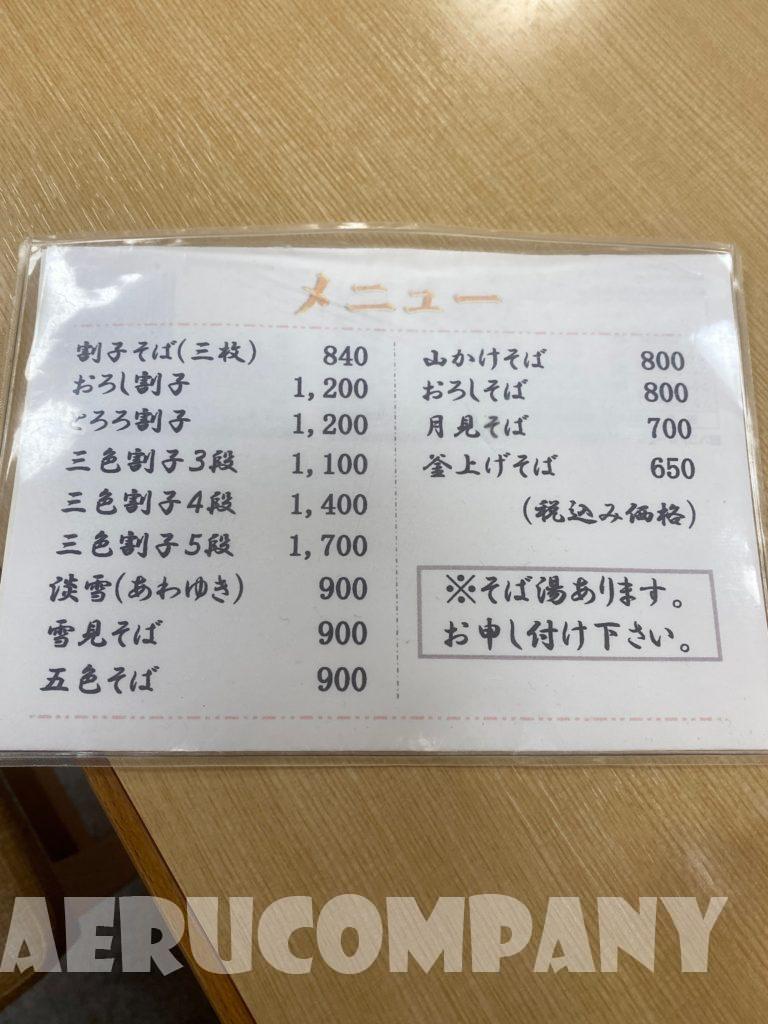 メニュー
割子そば(三枚) 840
おろし割子 1,200
とろろ割子 1,200
三色割子3段 1,100
三色割子4段 1,400
三色割子5段 1,700
淡雪(あわゆき) 900
雪見そば 900
五色そば 900
山かけそば 800
おろしそば 800
月見そば 700
釜上げそば 650
(税込み価格)
※そば湯あります。
お申し付け下さい。
AERUCOMPANY